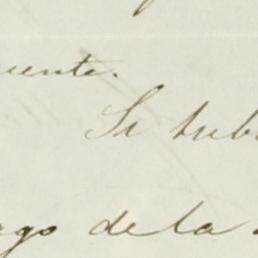 uente.
Si hub
ago de la